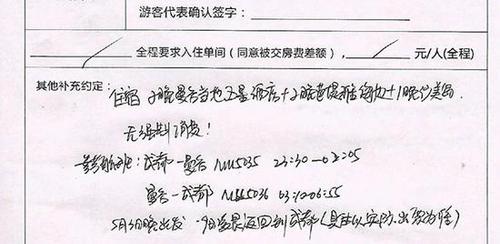 游客代表确认签字：
全程要求入住单间（同意被交房费差额）， 元/人(全程)
其他补充约定：
住宿 2晚曼谷当地五星酒店+2晚
无强制消费！
航班：成都-曼谷 5035 23:30-02:05
曼谷-成都 5036 03:1006:55
5月3日晚出发 9日凌晨返回到成都(具体以实际出票为准)